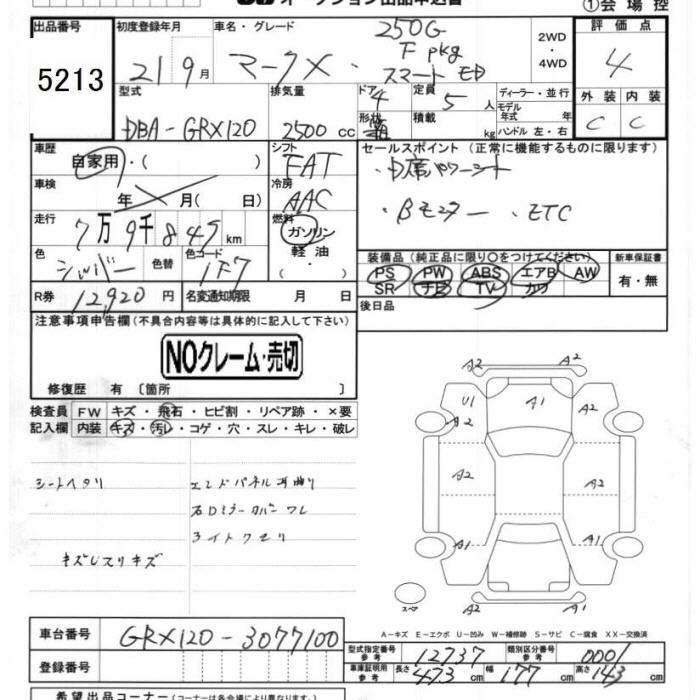 オークション出品申込書
①会場控
出品番号
5213
初度登録年月
21 9月
車名・グレード
マークX・250G
F pkg
スマートED
2WD
・
4WD
評価点
4
外装 内装
C C
型式
DBA-GRX120
排気量
2500 cc
ドア 4
形状 箱
定員 5 人
積載 kg
ディーラー・並行
モデル年式 年
ハンドル 左・右
車歴
自家用・( )
シフト
FAT
車検
年 月( 日)
冷房
AAC
走行
7万9千845km
燃料
ガソリン
軽油・
( )
色
シルバー
色替
色コード
1F7
R券
12,920円
名変通知期限 月 日
セールスポイント(正常に機能するものに限ります)
・Bモニター ・ETC
装備品(純正品に限り○をつけてください)
PS PW ABS エアB AW
SR ナビ TV カワ
新車保証書
有・無
後日品
注意事項申告欄(不具合内容等は具体的に記入して下さい)
NOクレーム・売切
修復歴 有〔箇所 〕
検査員 FW キズ・飛石・ヒビ割・リペア跡・×要
記入欄 内装 キズ・汚レ・コゲ・穴・スレ・キレ・破レ
シートヘタリ
エンドパネル耳曲り
右Dミラーカバーワレ
ライトクモリ
キズUスリキズ
A2 A2
U1 A1 A2
A2
A2 A2
A1 A1 A1
スペア
A-キズ E-エクボ U-凹み W-補修跡 S-サビ C-腐食 XX-交換済
車台番号
GRX120-3077100
登録番号
型式指定番号
参考
12737
類別区分番号
参考
0001
車庫証明用
参考
長さ 473cm
幅 177cm
高さ 143cm
希望出品コーナー(コーナーは各会場により異なります)